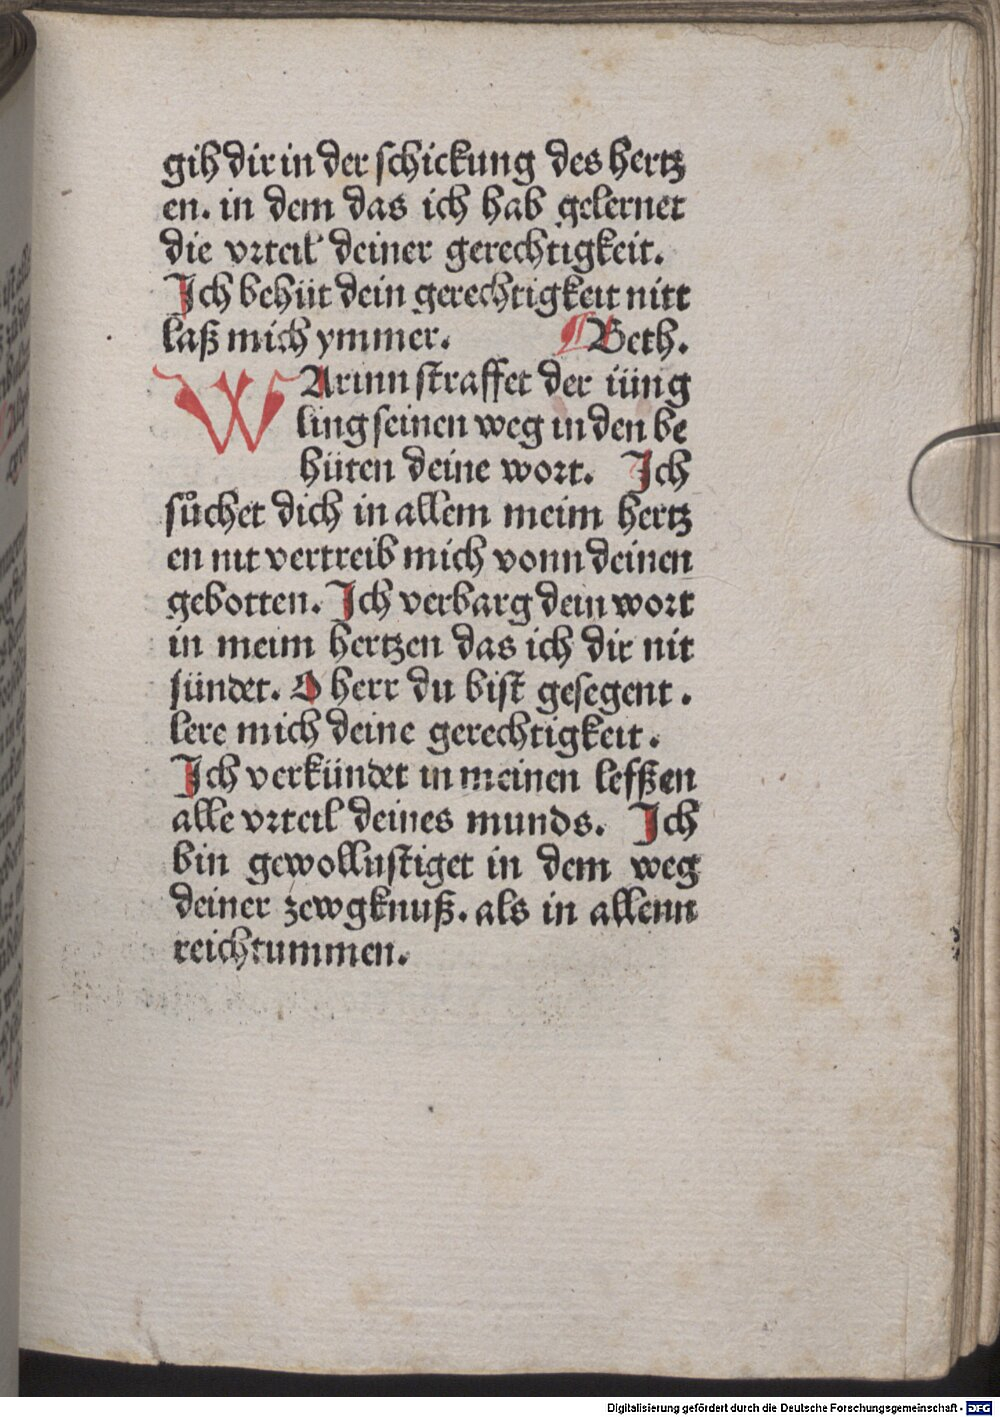 gih dir in der schickung des hertz
en. in dem das ich hab gelernet
die vrteil deiner gerechtigkeit.
Ich behüt dein gerechtigkeit nitt
laß mich ymmer. Beth.
WArinn straffet der iüng
ling seinen weg in den be
hüten deine wort. Ich
sůchet dich in allem meim hertz
en nit vertreib mich vonn deinen
gebotten. Ich verbarg dein wort
in meim hertzen das ich dir nit
sündet. O herr du bist gesegent.
lere mich deine gerechtigkeit.
Ich verkündet in meinen lefßen
alle vrteil deines munds. Ich
bin gewollustiget in dem weg
deiner zewgknuß. als in allenn
reichtummen.
Digitalisierung gefördert durch die Deutsche Forschungsgemeinschaft - DFG